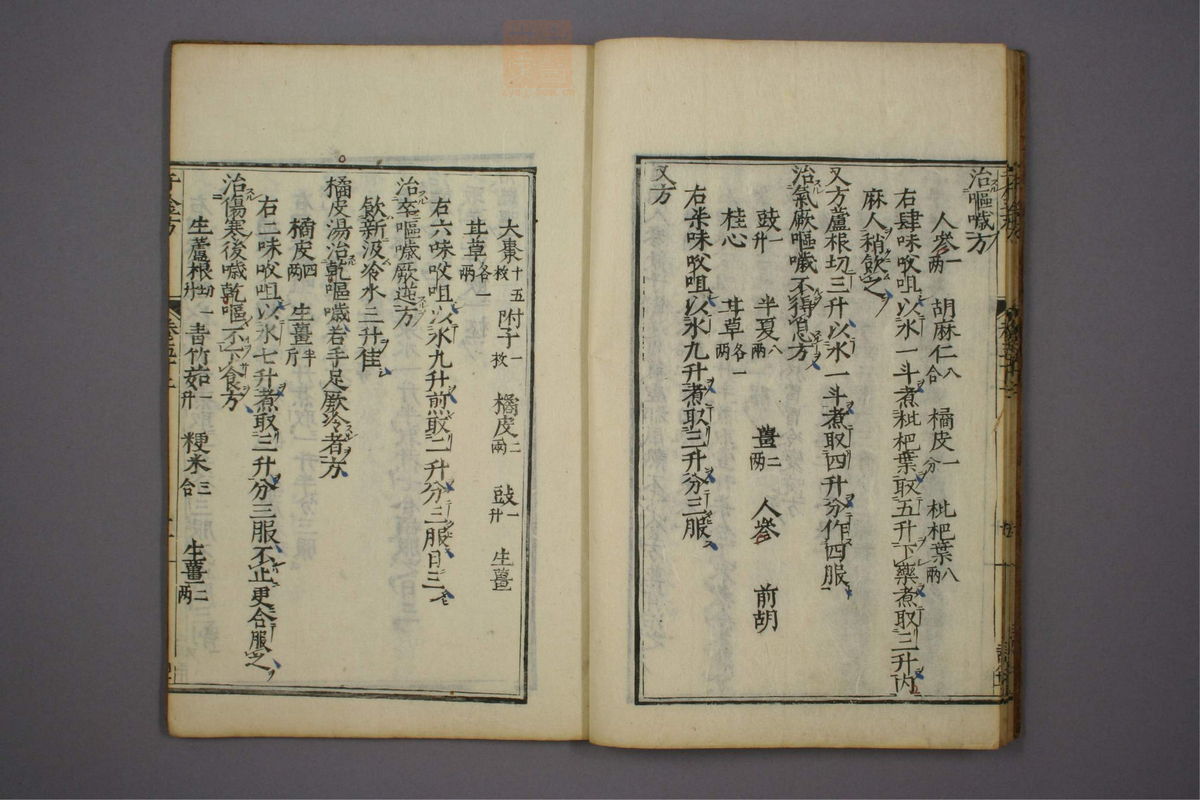 治嘔噦方
人參一兩 胡麻仁八合 橘皮一分 枇杷葉八兩
右肆味㕮咀以水一斗煮枇杷葉取五升下藥煮取三升内
麻人稍飲之
又方蘆根切三升以水一斗煮取四升分作四服
治氣厥嘔噦不得息方
豉一升 半夏八兩 薑二兩 人參 前胡
桂心 甘草各一兩
右柒味㕮咀以水九升煮取三升分三服
又方
大棗十五枚 附子一枚 橘皮二兩 豉一升 生薑
甘草各一兩
右六味㕮咀以水九升煎取二升分三服日三
治卒嘔噦厥逆方
飲新汲冷水三升佳
橘皮湯治乾嘔噦若手足厥冷者方
橘皮四兩 生薑半斤
右二味㕮咀以水七升煮取三升分三服不止更合服之
治傷寒後噦乾嘔不下食方
生蘆根切一升 青竹茹一升 粳米三合 生薑二兩
千金方